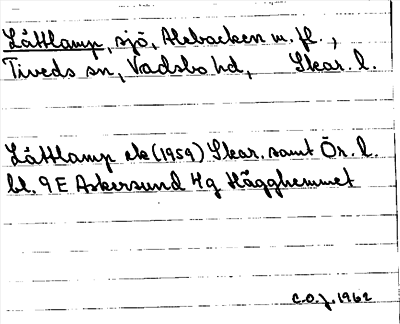 Låttlamp, sjö, Alebacken m. fl.,
Tiveds sn, Vadsbo hd, Skar. l.
Låttlamp ek (1959) Skar. samt Ör. l.
bl. 9 E Askersund 4g Hägghemmet
C.O.J. 1962